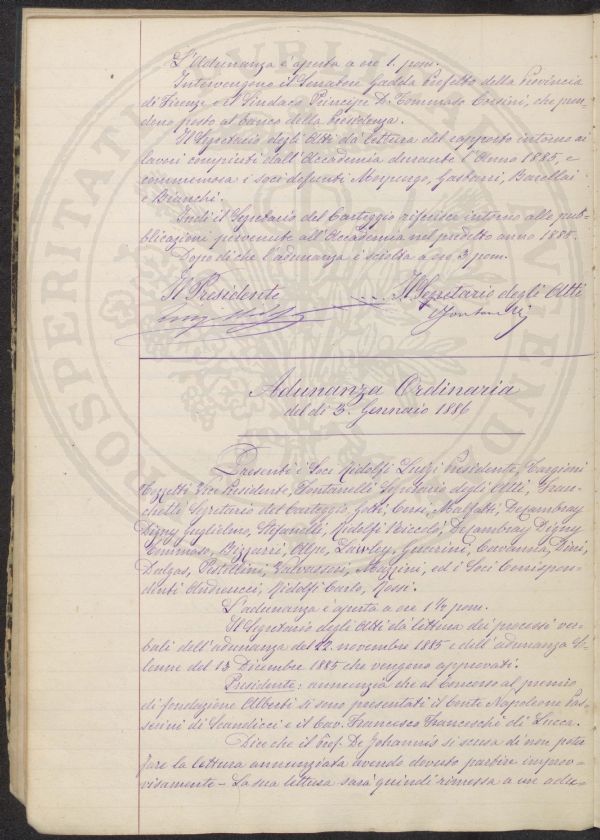 L'Adunanza è aperta a ore 1. pom.
Intervengono il Senatore Gadda Prefetto della Provincia
di Firenze e il Sindaco Principe D. Tommaso Corsini, che pren-
dono posto al banco della Presidenza.
Il Segretario degli Atti dà lettura del rapporto intorno ai
lavori compiuti dall'Accademia durante l'Anno 1885, e
commemora i soci defunti Morpurgo, Gasbarri, Barellai
e Bianchi.
Indi il Segretario del Carteggio riferisce intorno alle pub-
blicazioni pervenute all'Accademia nel predetto anno 1885.
Dopo di che l'adunanza è sciolta a ore 3 pom.
Il Presidente
Il Segretario degli Atti
Luigi Ridolfi
Fontanelli
Adunanza Ordinaria
del dì 3. Gennaio 1886
Presenti i Soci Ridolfi Luigi Presidente, Targioni
Tozzetti Vice Presidente, Fontanelli Segretario degli Atti, Fran-
chetti Segretario del Carteggio, Gotti, Corsi, Malfatti, Decambray
Digny Guglielmo, Stefanelli, Ridolfi Niccolò, Decambray Digny
Tommaso, Bizzarri, Alpe, Lawley, Guarini, Cavanna, Dini,
Dalgas, Pestellini, Valvassori, Mazzini, ed i Soci Corrispon-
denti Andreucci, Ridolfi Carlo, Rossi.
L'adunanza è aperta a ore 1 1/2 pom.
Il Segretario degli Atti dà lettura dei processi ver-
bali dell'adunanza del 22. novembre 1885 e dell'adunanza So-
lenne del 13 Dicembre 1885 che vengono approvati.
Presidente: annunzia che al Concorso al premio
di fondazione Alberti si sono presentati il Conte Napoleone Pas-
serini di Scandicci e il Cav. Francesco Franceschi di Lucca.
Dice che il Prof. De Johannis si scusa di non poter
fare la lettura annunziata avendo dovuto partire improv-
visamente - La sua lettura sarà quindi rimessa a un'adu-
PROSPERITATI PUBLICAE AUGENDAE